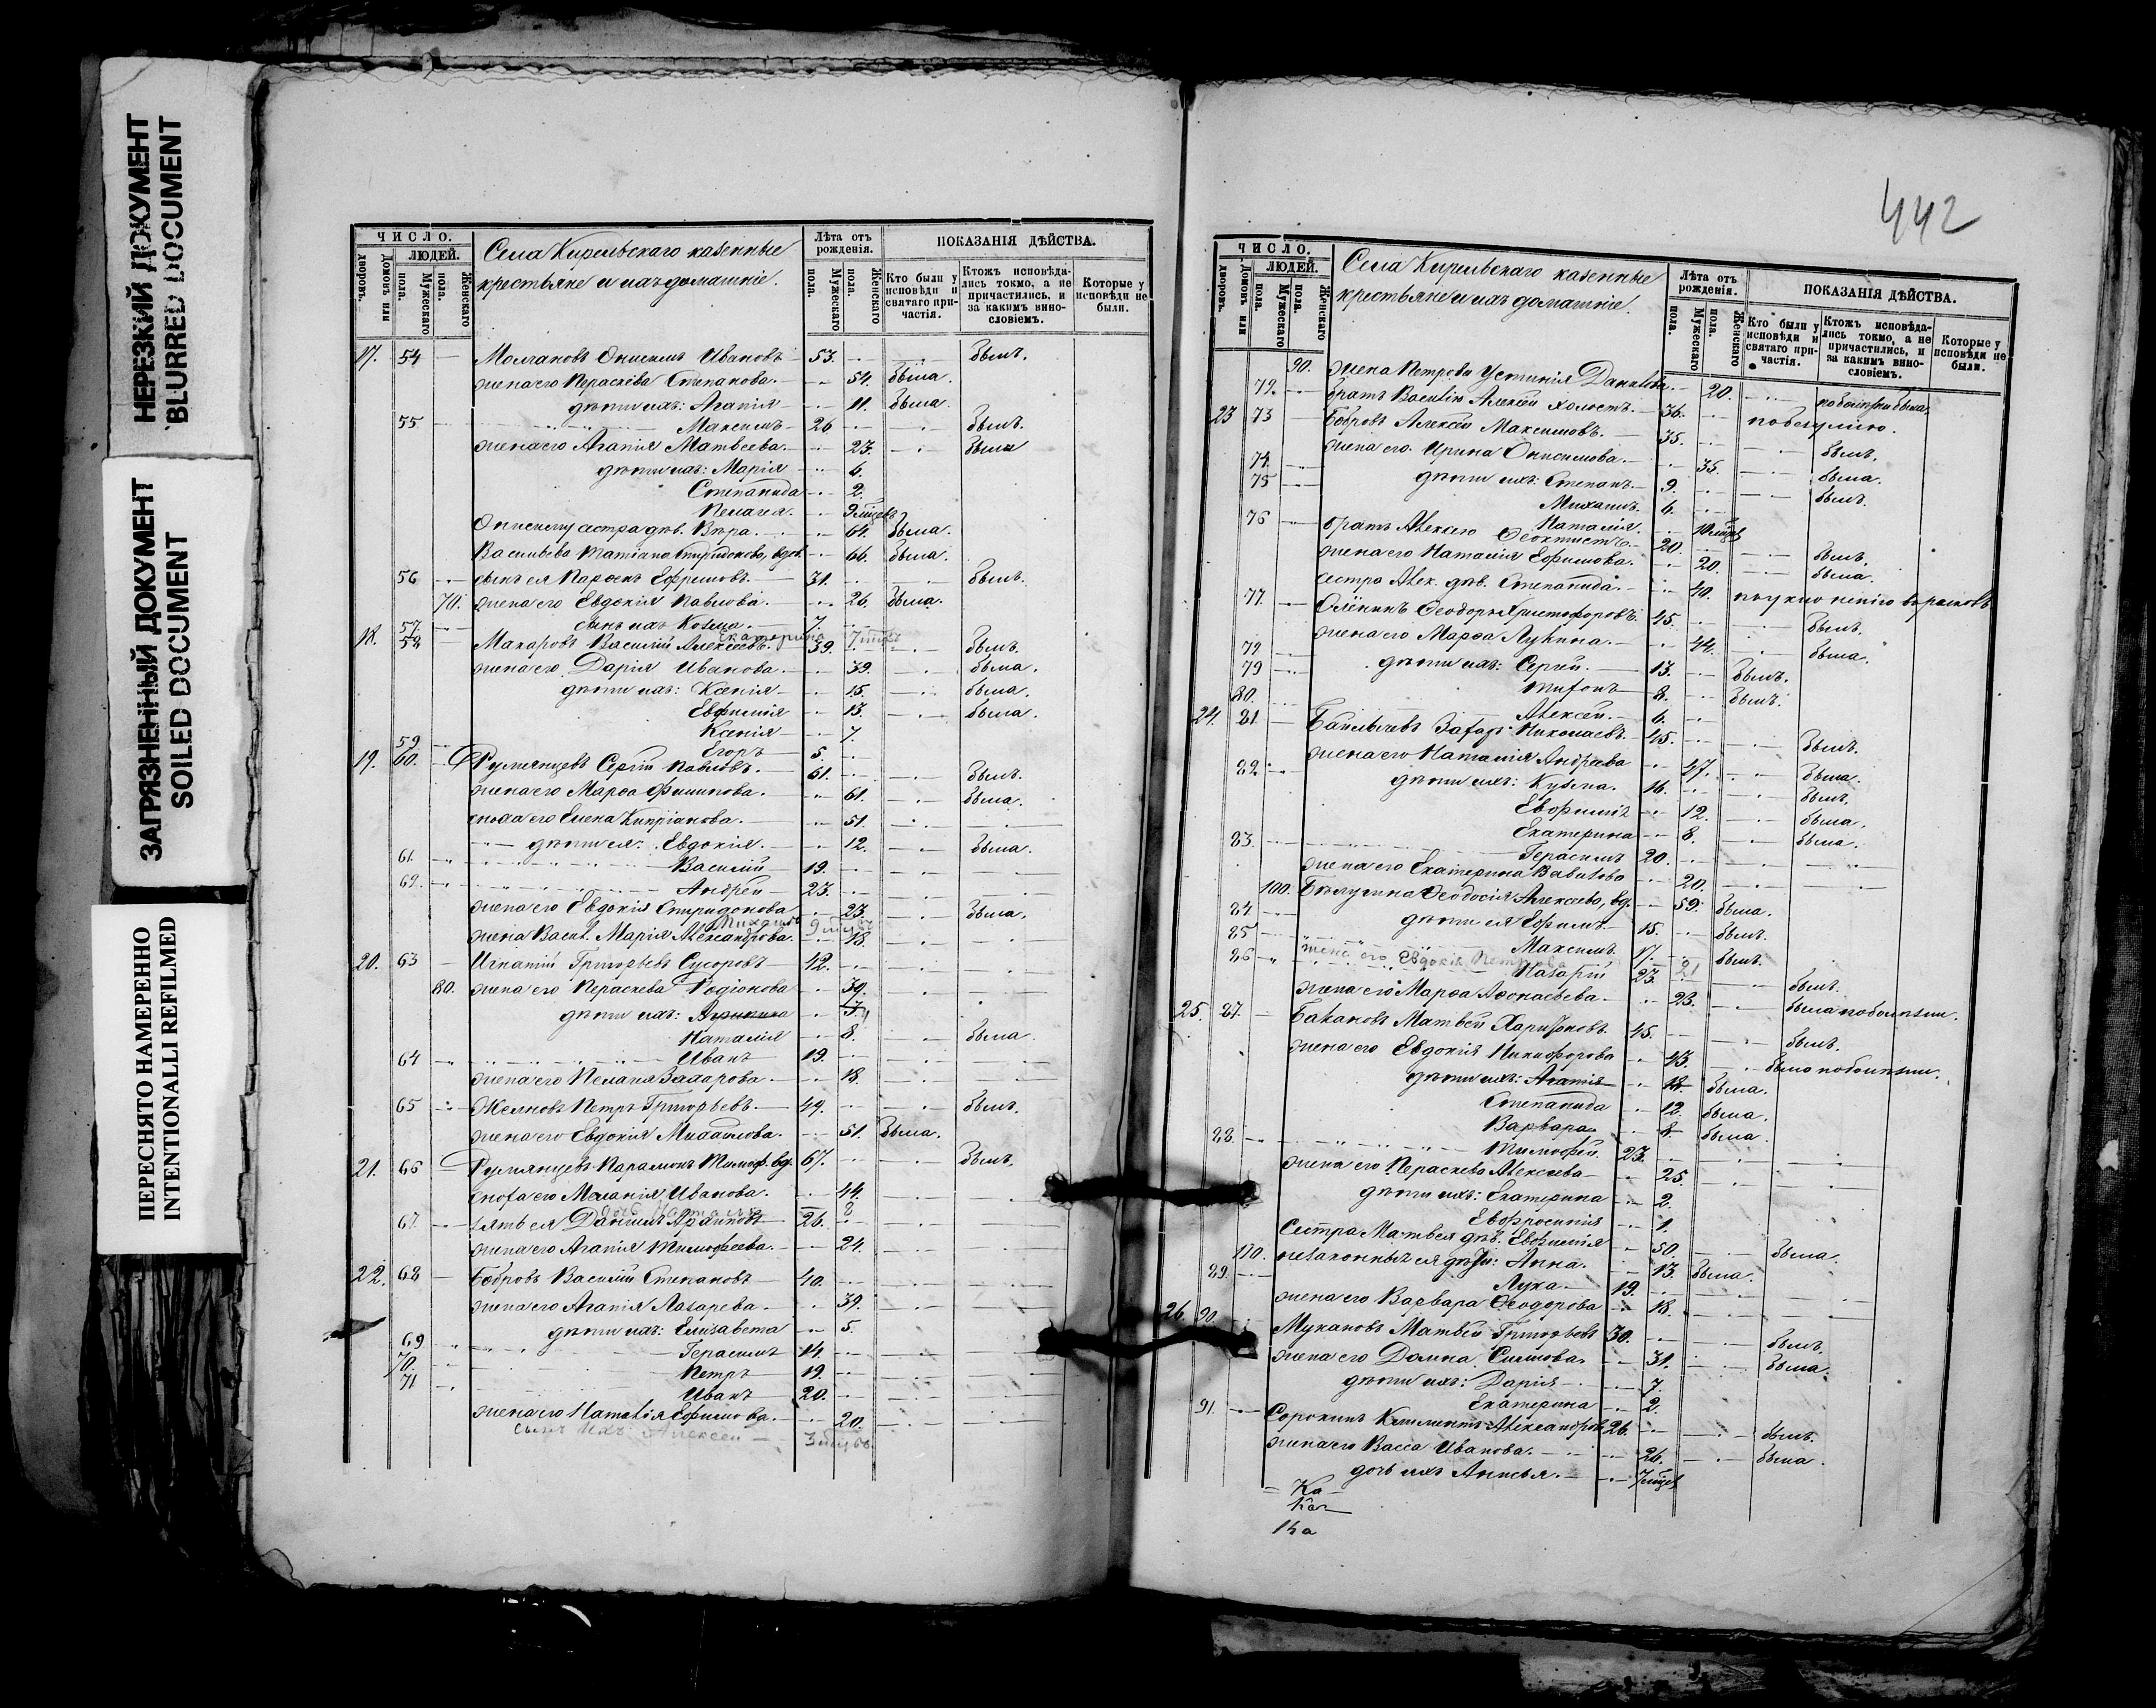 НЕРЕЗКИЙ ДОКУМЕНТ
BLURRED DOCUMENT
ЗАГРЯЗНЕННЫЙ ДОКУМЕНТ
SOILED DOCUMENT
ПЕРЕСНЯТО НАМЕРЕННО
INTENTIONALLI REFILMED
ЧИСЛО.
ЛЮДЕЙ.
Домовъ или дворовъ.
Мужескаго пола.
Женскаго пола.
Села Кирельскаго казенные
крестьяне и ихъ домашніе.
Лѣта отъ рожденія.
Мужескаго пола.
Женскаго пола.
ПОКАЗАНІЯ ДѢЙСТВА.
Кто были у исповѣди и святаго причастія.
Ктожъ исповѣдались токмо, а не причастились, и за какимъ винословіемъ.
Которые у исповѣди не были.
17. 54 Молчановъ Онисимъ Ивановъ 53. былъ.
жена его Пераскева Степанова. 54. была.
дѣти ихъ: Агапія 11. была.
55 Максимъ 26 былъ.
жена его Агапія Матвеева. 23. была
дѣти ихъ: Марія 6.
Степанида 2.
Пелагея. 9 мцевъ
Онисиму сестра дѣв. Вѣра. 64. была.
Васильева Матіана Спиридонова, вдов. 66. была.
56 сынъ ея Парѳенъ Ефремовъ. 31. былъ.
70. жена его Евдокія Павлова. 26. была.
57. сынъ ихъ Козма. 7.
Екатерина 7
18. 58 Макаровъ Василій Алексеевъ. 39. былъ.
жена его Дарія Иванова. 39. была.
дѣти ихъ: Ксенія 15. была.
Евфимія 13. была.
Ксенія 7.
59 Егоръ 5.
19. 60. Румянцевъ Сергій Павловъ. 61. былъ.
жена его Марѳа Филипова. 61. была.
сноха его Елена Кипріанова. 51.
дѣти ея: Евдокія. 12. была.
61. Василій 19.
62. Андрей 23.
жена его Евдокія Спиридонова 23. была.
Михаилъ 9 мцевъ
жена Васил. Марія Александрова. 18.
20. 63 Игнатій Григорьевъ Сусоровъ 42.
80. жена его Пераскева Родіонова 39.
дѣти ихъ: Агрипина 3.
Наталія 8. была
64 Иванъ 19.
жена его Пелагея Захарова. 18.
65 Желновъ Петръ Григорьевъ. 49. былъ.
жена его Евдокія Михайлова. 51. была.
21. 66 Румянцевъ Парамонъ Тимоф. вд. 67. былъ.
сноха его Меланія Иванова. 44.
дочь Наталія 8
67. зять ея Даніилъ 26.
жена его Агапія Тимофеева. 24.
22. 68 Бобровъ Василій Степановъ 40.
жена его Агапія Лазарева. 39.
дѣти ихъ: Елизавета 5.
69 Герасимъ 14.
70. Петръ 19.
71 Иванъ 20.
жена его Наталія Ефимова. 20.
сынъ ихъ Алексей 3 мцевъ.
442
ЧИСЛО.
ЛЮДЕЙ.
Домовъ или дворовъ.
Мужескаго пола.
Женскаго пола.
Села Кирельскаго казенные
крестьяне и ихъ домашніе.
Лѣта отъ рожденія.
Мужескаго пола.
Женскаго пола.
ПОКАЗАНІЯ ДѢЙСТВА.
Кто были у исповѣди и святаго причастія.
Ктожъ исповѣдались токмо, а не причастились, и за какимъ винословіемъ.
Которые у исповѣди не были.
90. жена Петрова Устинія Данилова. 20. по болѣзни была.
72. братъ Василію Алексей холостъ. 36. по безумію.
23 73 Бобровъ Алексей Максимовъ. 35. былъ.
жена его Ирина Онисимова. 35. была.
74. дѣти ихъ: Степанъ. 9. былъ.
75 Михаилъ. 6.
Наталія 10 мцев
76 братъ Алексею Ѳеоктистъ. 20. былъ.
жена его Наталія Ефимова. 20. была.
сестра Алек. дѣв. Степанида. 40.
77. Олёнинъ Ѳеодоръ Христофоровъ. 45. былъ.
жена его Марѳа Лукина. 44. была.
78 дѣти ихъ: Сергей. 13. былъ.
79 Тифонъ 8. былъ.
80. Алексей. 6.
24. 81 Захаръ Николаевъ. 45. былъ.
жена его Наталія Андреева 47. была.
82 дѣти ихъ: Кузма. 16. былъ.
Евфимія 12. была.
Екатерина 8. была.
83. Герасимъ 20.
жена его Екатерина Вавилова 20.
100. Бѣлугина Ѳеодосія Алексеева, вд. 59. была.
84 дѣти ея Ефимъ. 15. былъ.
85 Максимъ. 17. былъ.
жена его Евдокія Петрова 21
86 Назарій 23. былъ.
жена его Марѳа Аѳонасьева. 23. была по болѣзни.
25. 87. Бакановъ Матвей Харитоновъ. 45. былъ.
жена его Евдокія Никифорова 43. была по болѣзни.
дѣти ихъ: Агапія 18 была.
Степанида 12. была.
Варвара. 8 была.
88. Тимофей. 23.
жена его Пераскева Алексеева 25.
дѣти ихъ: Екатерина 2.
Евфросинія 1.
Сестра Матвея дѣв. Евфимія 50. была.
110. незаконные ея дѣти: Анна. 13. была.
89. Лука. 19.
жена его Варвара Ѳеодорова 18.
26. 90. Мукановъ Матвей Григорьевъ 30. былъ.
жена его Домна Силиова. 31. была.
дѣти ихъ: Дарія 7.
Екатерина 2.
91. Сорокинъ Климентъ Александровъ 26. былъ.
жена его Васса Иванова. 26. была.
дочь ихъ Анисья. 7 мцев
Ка
Ка
Ка